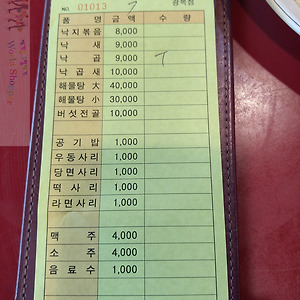 No. 01013 7 광복점
품 명 금 액 수 량
낙지볶음 8,000
낙 새 9,000
낙 곱 9,000 T
낙 곱 새 10,000
해물탕 大 40,000
해물탕 小 30,000
버섯전골 10,000
공 기 밥 1,000
우동사리 1,000
당면사리 1,000
떡 사 리 1,000
라면사리 1,000
맥 주 4,000
소 주 4,000
음 료 수 1,000